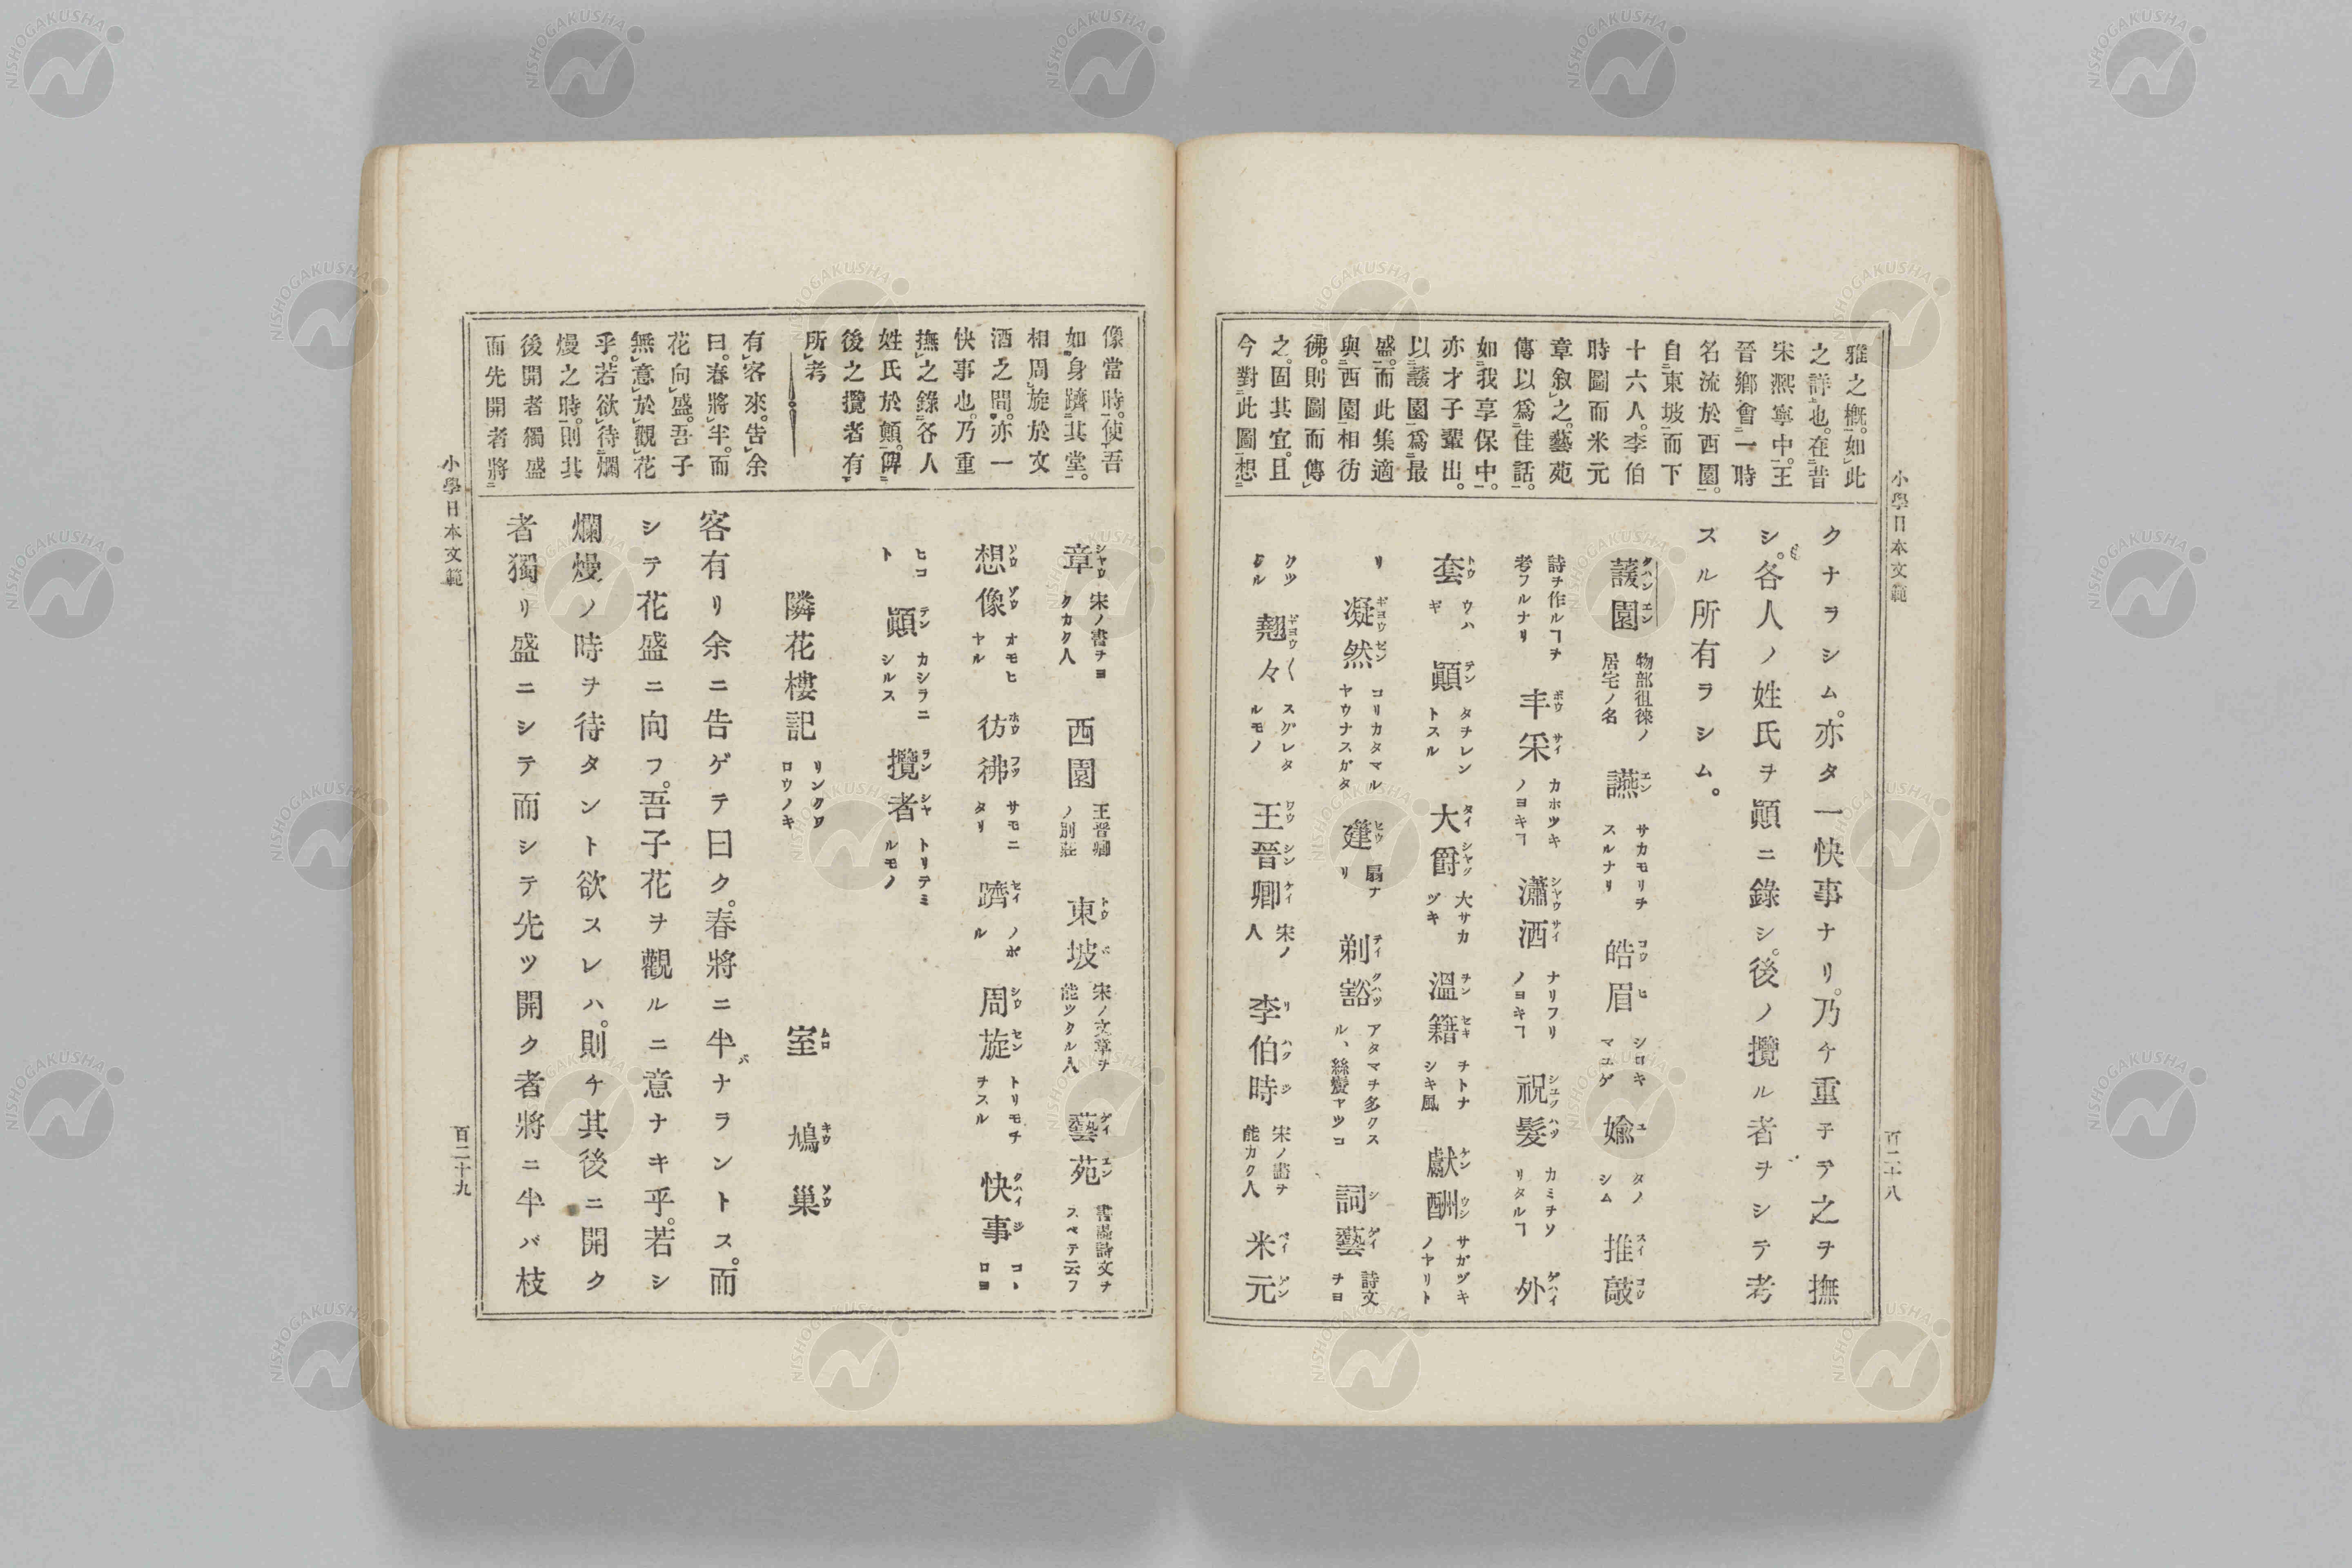 小學日本文範
百二十八
雅之概。如此
之詳也。在昔
宋熈寧中。王
晉鄕會一時
名流於西園。
自東坡而下
十六人。李伯
時圖而米元
章敘之。藝苑
傳以爲佳話。
如我享保中。
亦才子輩出。
以蘐園爲最
盛。而此集適
與西園相彷
彿。則圖而傳
之。固其宜。且
今對此圖想
クナラシム。亦タ一快事ナリ。乃チ重子テ之ヲ撫
シ。各人ノ姓氏ヲ顚ニ錄シ。後ノ攬ル者ヲシテ考
スル所有ラシム。
蘐園 物部徂徠ノ居宅ノ名 讌 サカモリヲスルナリ 皓眉 シロキマユゲ 婾 タノシム 推敲
詩ヲ作ルヿヲ考フルナリ 丰采 カホツキノヨキヿ 瀟洒 ナリフリノヨキヿ 祝髮 カミヲソリタルヿ 外
套 ウハギ 顚 タヲレントスル 大爵 大サカヅキ 溫籍 ヲトナシキ風 獻酬 サカヅキノヤリト
リ 凝然 コリカタマルヤウナスガタ 箑 扇ナリ 剃豁 アタマヲ多クスル、絲鬢ヤツコ 詞藝 詩文ヲヨ
クツヾル 翹々 スグレタルモノ 王晉卿 宋ノ人 李伯時 宋ノ畵ヲ能カク人 米元
像當時。使吾
如身躋其堂。
相周旋於文
酒之間。亦一
快事也。乃重
撫之錄各人
姓氏於顚。俾
後之攬者有
所考
有客來。告余
曰。春將半。而
花向盛。吾子
無意於觀花
乎。若欲待爛
熳之時。則其
後開者獨盛
而先開者將
章 宋ノ書ヲヨクカク人 西園 王晋卿ノ別莊 東坡 宋ノ文章ヲ能ツクル人 藝苑 書畵詩文ナスベテ云フ
想像 オモヒヤル 彷彿 サモニタリ 躋 ノボル 周旋 トリモチヲスル 快事 コヽロヨ
ヒコト 顚 カシラニシルス 攬者 トリテミルモノ
隣花樓記 リンクワロウノキ 室 鳩巢
客有リ余ニ告ゲテ曰ク。春將ニ半バナラントス。而
シテ花盛ニ向フ。吾子花ヲ觀ルニ意ナキ乎。若シ
爛熳ノ時ヲ待タント欲スレハ。則チ其後ニ開ク
者獨リ盛ニシテ而シテ先ツ開ク者將ニ半バ枝
小學日本文範
百二十九
NISHOGAKUSHA